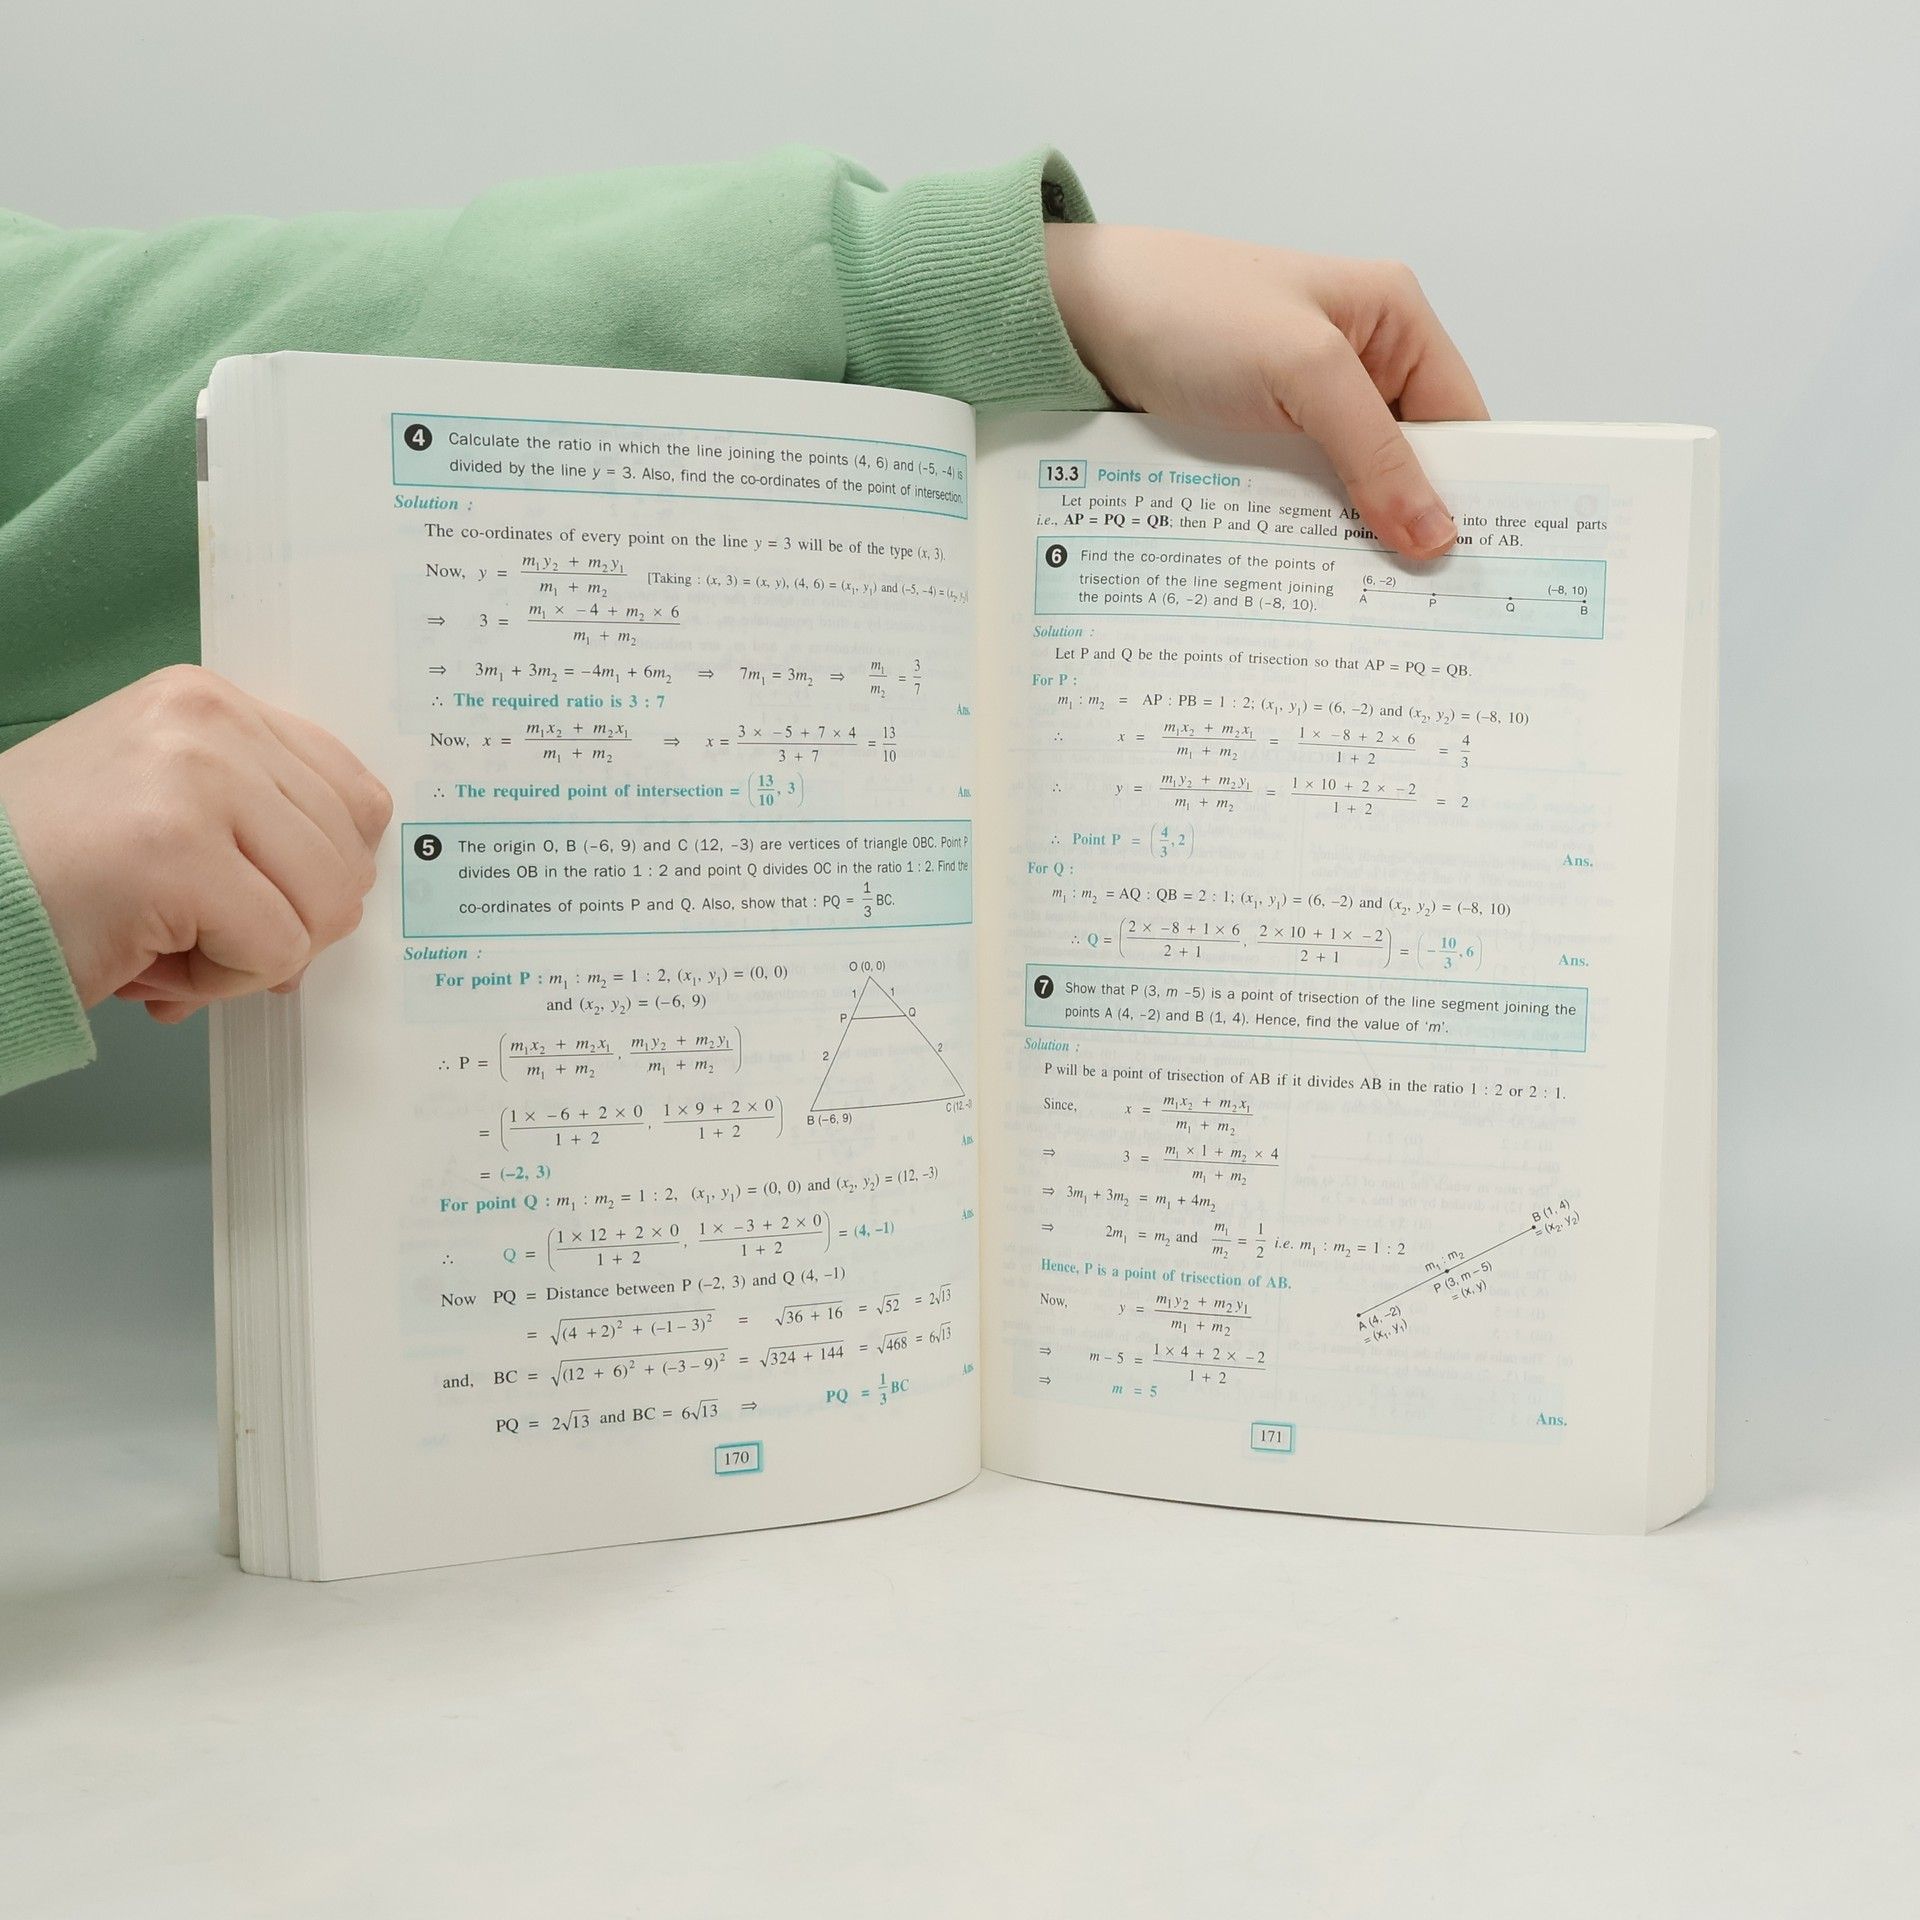 4 Calculate the ratio in which the line joining the points (4, 6) and (-5, -4) is
divided by the line y = 3. Also, find the co-ordinates of the point of intersection.
Solution :
The co-ordinates of every point on the line y = 3 will be of the type (x, 3).
Now, y = (m₁y₂ + m₂y₁)/(m₁ + m₂) [Taking : (x, 3) = (x, y), (4, 6) = (x₁, y₁) and (-5, -4) = (x₂, y₂)]
⇒ 3 = (m₁ × -4 + m₂ × 6)/(m₁ + m₂)
⇒ 3m₁ + 3m₂ = -4m₁ + 6m₂ ⇒ 7m₁ = 3m₂ ⇒ m₁/m₂ = 3/7
∴ The required ratio is 3 : 7 Ans.
Now, x = (m₁x₂ + m₂x₁)/(m₁ + m₂) ⇒ x = (3 × -5 + 7 × 4)/(3 + 7) = 13/10
∴ The required point of intersection = (13/10, 3) Ans.
5 The origin O, B (-6, 9) and C (12, -3) are vertices of triangle OBC. Point P
divides OB in the ratio 1 : 2 and point Q divides OC in the ratio 1 : 2. Find the
co-ordinates of points P and Q. Also, show that : PQ = 1/3 BC.
Solution :
For point P : m₁ : m₂ = 1 : 2, (x₁, y₁) = (0, 0)
and (x₂, y₂) = (-6, 9)
∴ P = ((m₁x₂ + m₂x₁)/(m₁ + m₂), (m₁y₂ + m₂y₁)/(m₁ + m₂))
= ((1 × -6 + 2 × 0)/(1 + 2), (1 × 9 + 2 × 0)/(1 + 2))
= (-2, 3) Ans.
O (0, 0)
1 1
P Q
2 2
B (-6, 9) C (12, -3
For point Q : m₁ : m₂ = 1 : 2, (x₁, y₁) = (0, 0) and (x₂, y₂) = (12, -3)
∴ Q = ((1 × 12 + 2 × 0)/(1 + 2), (1 × -3 + 2 × 0)/(1 + 2)) = (4, -1) Ans.
Now PQ = Distance between P (-2, 3) and Q (4, -1)
= √((4 +2)² + (-1 - 3)²) = √(36 + 16) = √52 = 2√13
and, BC = √((12 + 6)² + (-3 - 9)²) = √(324 + 144) = √468 = 6√13
PQ = 2√13 and BC = 6√13 ⇒ PQ = 1/3 BC Ans.
170
13.3 Points of Trisection :
Let points P and Q lie on line segment AB into three equal parts
i.e., AP = PQ = QB; then P and Q are called of AB.
6 Find the co-ordinates of the points of
trisection of the line segment joining
the points A (6, -2) and B (-8, 10).
(6, -2) (-8, 10)
A P Q B
Solution :
Let P and Q be the points of trisection so that AP = PQ = QB.
For P :
m₁ : m₂ = AP : PB = 1 : 2; (x₁, y₁) = (6, -2) and (x₂, y₂) = (-8, 10)
∴ x = (m₁x₂ + m₂x₁)/(m₁ + m₂) = (1 × -8 + 2 × 6)/(1 + 2) = 4/3
∴ y = (m₁y₂ + m₂y₁)/(m₁ + m₂) = (1 × 10 + 2 × -2)/(1 + 2) = 2
∴ Point P = (4/3, 2) Ans.
For Q :
m₁ : m₂ = AQ : QB = 2 : 1; (x₁, y₁) = (6, -2) and (x₂, y₂) = (-8, 10)
∴ Q = ((2 × -8 + 1 × 6)/(2 + 1), (2 × 10 + 1 × -2)/(2 + 1)) = (-10/3, 6) Ans.
7 Show that P (3, m -5) is a point of trisection of the line segment joining the
points A (4, -2) and B (1, 4). Hence, find the value of 'm'.
Solution :
P will be a point of trisection of AB if it divides AB in the ratio 1 : 2 or 2 : 1.
Since, x = (m₁x₂ + m₂x₁)/(m₁ + m₂)
⇒ 3 = (m₁ × 1 + m₂ × 4)/(m₁ + m₂)
⇒ 3m₁ + 3m₂ = m₁ + 4m₂
⇒ 2m₁ = m₂ and m₁/m₂ = 1/2 i.e. m₁ : m₂ = 1 : 2
Hence, P is a point of trisection of AB.
Now, y = (m₁y₂ + m₂y₁)/(m₁ + m₂)
⇒ m - 5 = (1 × 4 + 2 × -2)/(1 + 2)
⇒ m = 5
Ans.
B (1, 4)
= (x₂, y₂)
m₁ : m₂
P (3, m - 5)
= (x, y)
A (4, -2)
= (x₁, y₁)
171